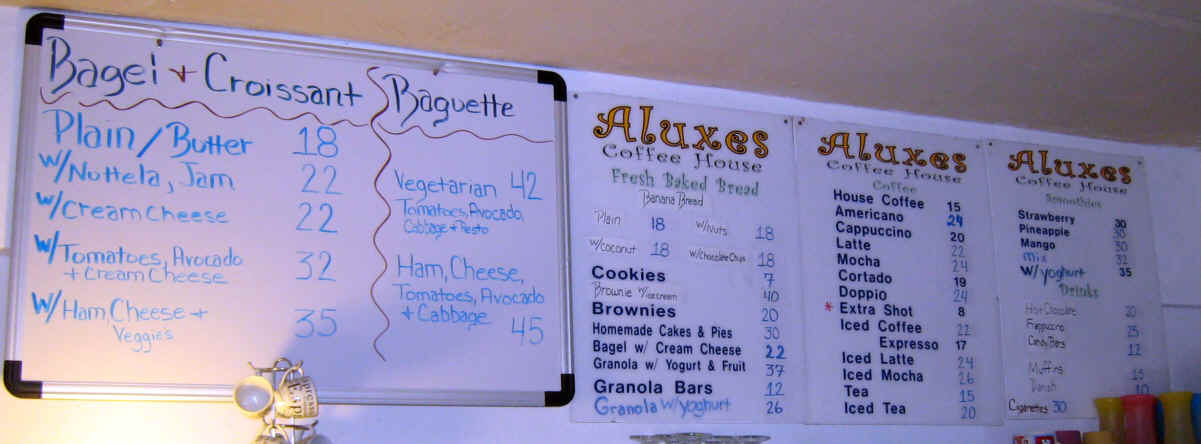 Bagel + Croissant
Plain/Butter 18
w/Nuttela, Jam 22
w/Cream Cheese 22
w/Tomatoes, Avocado
+ Cream Cheese 32
w/Ham, Cheese +
Veggie's 35
Baguette
Vegetarian 42
Tomatoes, Avocado,
Cabbage + Pesto
Ham, Cheese,
Tomatoes, Avocado
+ Cabbage 45
Aluxes
Coffee House
Fresh Baked Bread
Banana Bread
Plain 18 w/Nuts 18
w/coconut 18 w/Chocolate Chips 18
Cookies 7
Brownie w/icecream 40
Brownies 20
Homemade Cakes & Pies 30
Bagel w/ Cream Cheese 22
Granola w/ Yogurt & Fruit 37
Granola Bars 12
Granola w/yoghurt 26
Aluxes
Coffee House
Coffee
House Coffee 15
Americano 24
Cappuccino 20
Latte 22
Mocha 24
Cortado 19
Doppio 24
* Extra Shot 8
Iced Coffee 22
Expresso 17
Iced Latte 24
Iced Mocha 26
Tea 15
Iced Tea 20
Aluxes
Coffee House
Smoothies
Strawberry 30
Pineapple 30
Mango 30
mix 32
w/yoghurt 35
Drinks
Hot Chocolate 20
Frappucino 25
Candy Bars 12
Muffins 15
Danish 10
Cigarettes 30